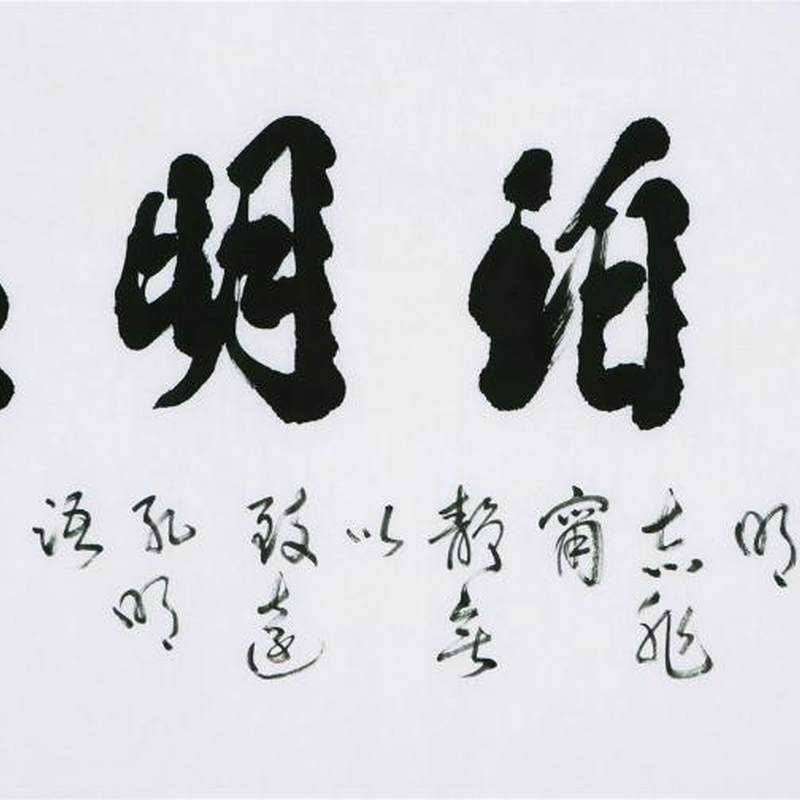 泊明
明
志非
甯
静無
以
致遠
孔明
語